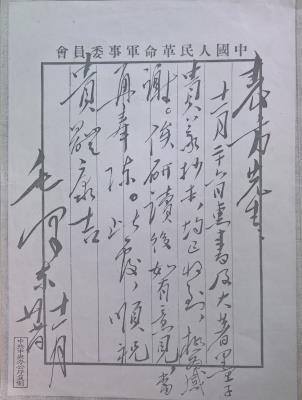 中國人民革命軍事委員會
袁方先生：
十一月二十六日惠書及大著墨子
貴義抄本，均已收到，極為感
謝。俟研讀後如有意見，當
再奉陳。此復，順祝
貴體康吉
毛澤東
十一月
中共中央办公厅复制